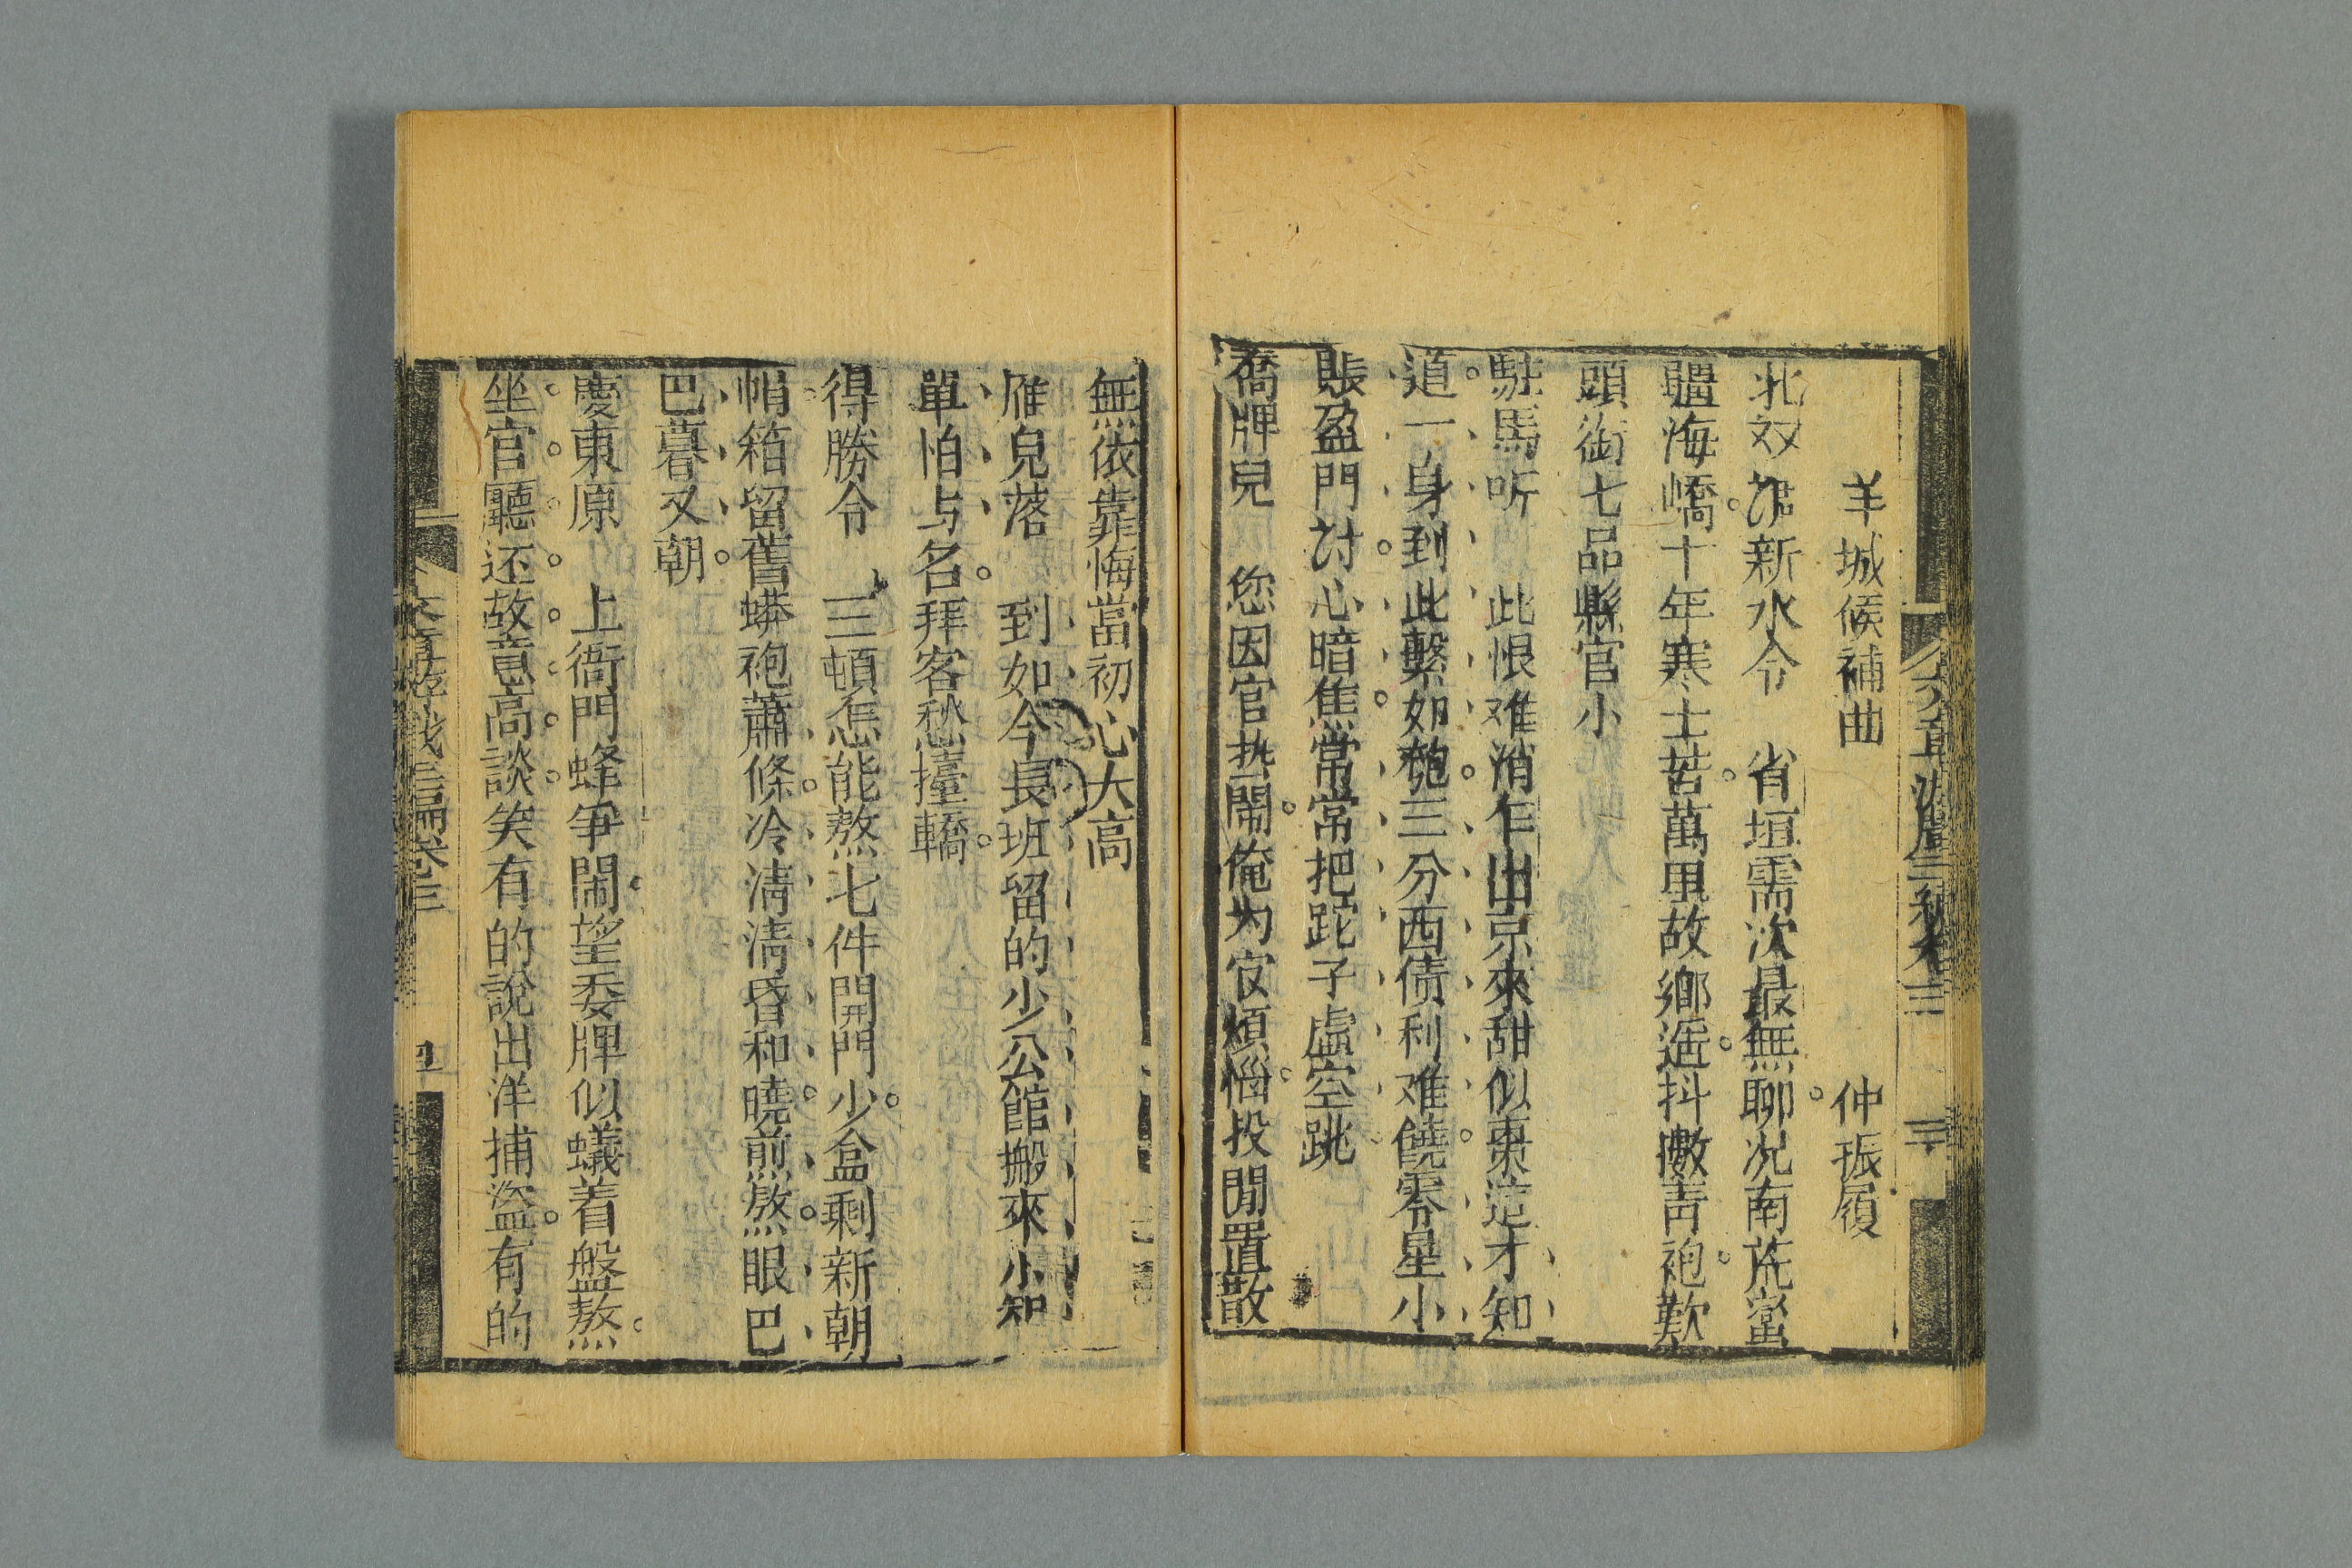 羊城候補曲　仲振履
北双㳍新水令　省垣需次最無聊况南荒蠻
疆海嶠十年寒士苦萬里故鄉遥抖擻青袍歎
頭銜七品縣官小
駐馬听　此恨难消乍出京來甜似棗這才知
道一身到此繫如匏三分西债利难饒零星小
賬盈門討心暗焦常常把跎子虛空跳
喬牌兒　您因官热鬧俺为官煩惱投閒置散
無依靠悔當初心大高
雁兒落　到如今長班留的少公館搬來小知
單怕与名拜客愁擡轎
得勝令　三頓怎能熬七件開門少盒剩新朝
帽箱留舊蟒袍蕭條冷清清昏和曉煎熬眼巴
巴暮又朝
慶東原　上衙門蜂爭鬧望委牌似蟻着盤熬
坐官廳还故意高談笑有的說出洋捕盜有的
文章游戲三編卷三